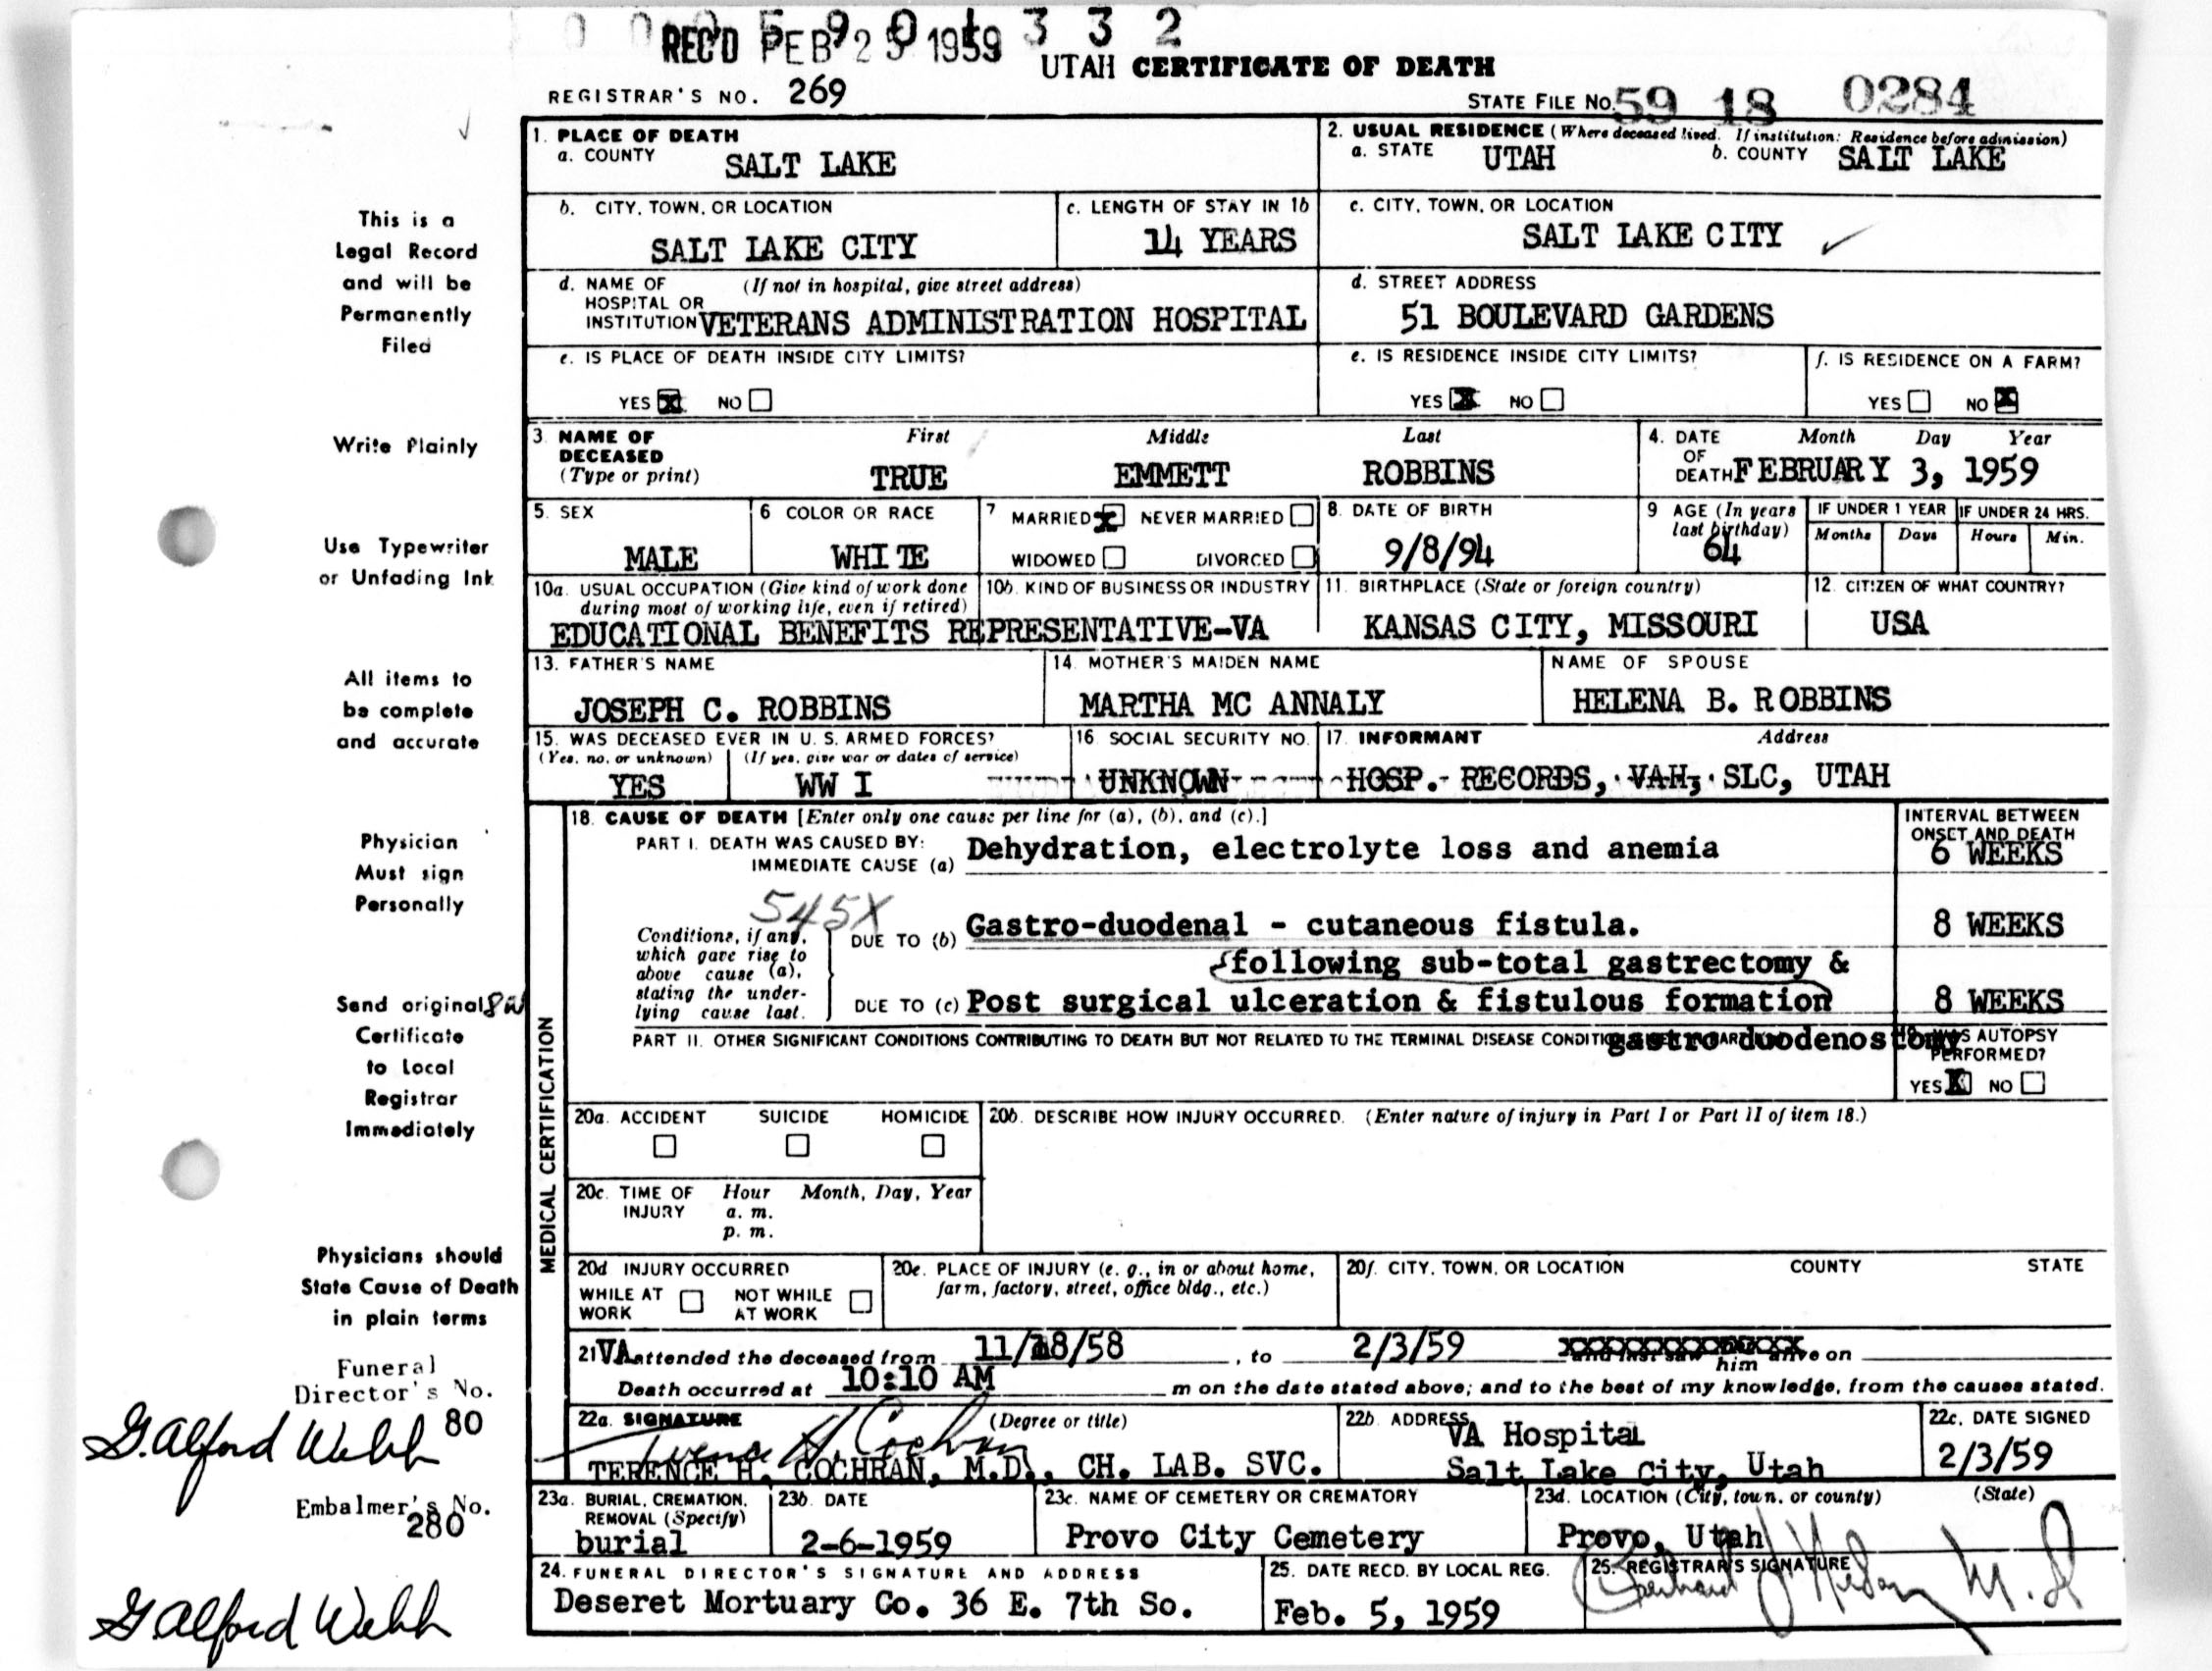 REC'D FEB 25 1959
0 0 0 5 9 0 1 3 3 2
UTAH CERTIFICATE OF DEATH
REGISTRAR'S NO. 269
STATE FILE NO. 59 18 0284
This is a
Legal Record
and will be
Permanently
Filed
Write Plainly
Use Typewriter
or Unfading Ink
All items to
be complete
and accurate
Physician
Must sign
Personally
Send original
Certificate
to Local
Registrar
Immediately
Physicians should
State Cause of Death
in plain terms
Funeral
Director's No.
80
G. Alford Webb
Embalmer's No.
280
G. Alford Webb
1. PLACE OF DEATH
a. COUNTY SALT LAKE
2. USUAL RESIDENCE (Where deceased lived. If institution: Residence before admission)
a. STATE UTAH b. COUNTY SALT LAKE
b. CITY, TOWN, OR LOCATION
SALT LAKE CITY
c. LENGTH OF STAY IN 1b
14 YEARS
c. CITY, TOWN, OR LOCATION
SALT LAKE CITY
d. NAME OF (If not in hospital, give street address)
HOSPITAL OR
INSTITUTION VETERANS ADMINISTRATION HOSPITAL
d. STREET ADDRESS
51 BOULEVARD GARDENS
e. IS PLACE OF DEATH INSIDE CITY LIMITS?
YES X NO
e. IS RESIDENCE INSIDE CITY LIMITS?
YES X NO
f. IS RESIDENCE ON A FARM?
YES NO X
3 NAME OF First Middle Last
DECEASED
(Type or print) TRUE EMMETT ROBBINS
4. DATE Month Day Year
OF
DEATH FEBRUARY 3, 1959
5. SEX
MALE
6 COLOR OR RACE
WHITE
7 MARRIED X NEVER MARRIED
WIDOWED DIVORCED
8. DATE OF BIRTH
9/8/94
9 AGE (In years
last birthday)
64
IF UNDER 1 YEAR
Months Days
IF UNDER 24 HRS.
Hours Min.
10a. USUAL OCCUPATION (Give kind of work done
during most of working life, even if retired)
10b. KIND OF BUSINESS OR INDUSTRY
EDUCATIONAL BENEFITS REPRESENTATIVE-VA
11. BIRTHPLACE (State or foreign country)
KANSAS CITY, MISSOURI
12. CITIZEN OF WHAT COUNTRY?
USA
13. FATHER'S NAME
JOSEPH C. ROBBINS
14. MOTHER'S MAIDEN NAME
MARTHA MC ANNALY
NAME OF SPOUSE
HELENA B. ROBBINS
15. WAS DECEASED EVER IN U. S. ARMED FORCES?
(Yes, no, or unknown) (If yes, give war or dates of service)
YES WW I
16. SOCIAL SECURITY NO.
UNKNOWN
17. INFORMANT Address
HOSP. RECORDS, VAH, SLC, UTAH
MEDICAL CERTIFICATION
18. CAUSE OF DEATH [Enter only one cause per line for (a), (b), and (c).]
INTERVAL BETWEEN
ONSET AND DEATH
PART I. DEATH WAS CAUSED BY:
IMMEDIATE CAUSE (a) Dehydration, electrolyte loss and anemia
6 WEEKS
545X
Conditions, if any,
which gave rise to
above cause (a),
stating the under-
lying cause last.
DUE TO (b) Gastro-duodenal - cutaneous fistula.
8 WEEKS
following sub-total gastrectomy &
DUE TO (c) Post surgical ulceration & fistulous formation
8 WEEKS
PART II. OTHER SIGNIFICANT CONDITIONS CONTRIBUTING TO DEATH BUT NOT RELATED TO THE TERMINAL DISEASE CONDITION
gastro duodenostomy
WAS AUTOPSY
PERFORMED?
YES X NO
20a. ACCIDENT SUICIDE HOMICIDE
20b. DESCRIBE HOW INJURY OCCURRED. (Enter nature of injury in Part I or Part II of item 18.)
20c. TIME OF Hour Month, Day, Year
INJURY a. m.
p. m.
20d INJURY OCCURRED
WHILE AT NOT WHILE
WORK AT WORK
20e. PLACE OF INJURY (e. g., in or about home,
farm, factory, street, office bldg., etc.)
20f. CITY, TOWN, OR LOCATION COUNTY STATE
21 VA attended the deceased from 11/18/58, to 2/3/59 and last saw him alive on
Death occurred at 10:10 AM m on the date stated above; and to the best of my knowledge, from the causes stated.
22a. SIGNATURE (Degree or title)
Terence H Cochran
TERENCE H. COCHRAN, M.D., CH. LAB. SVC.
22b. ADDRESS
VA Hospital
Salt Lake City, Utah
22c. DATE SIGNED
2/3/59
23a. BURIAL, CREMATION,
REMOVAL (Specify)
burial
23b. DATE
2-6-1959
23c. NAME OF CEMETERY OR CREMATORY
Provo City Cemetery
23d. LOCATION (City, town, or county) (State)
Provo, Utah
24. FUNERAL DIRECTOR'S SIGNATURE AND ADDRESS
Deseret Mortuary Co. 36 E. 7th So.
25. DATE RECD. BY LOCAL REG.
Feb. 5, 1959
25. REGISTRAR'S SIGNATURE
M.D